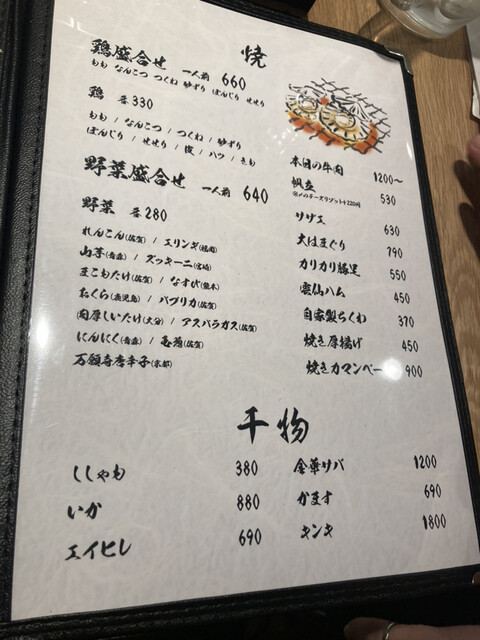 焼
鶏盛合せ 一人前 660
もも なんこつ つくね 砂ずり ぼんじり せせり
鶏 各330
もも / なんこつ / つくね / 砂ずり
ぼんじり / せせり / 皮 / ハツ / きも
野菜盛合せ 一人前 640
野菜 各280
れんこん(佐賀) / エリンギ(福岡)
山芋(青森) / ズッキーニ(宮崎)
まこもたけ(佐賀) / なすび(熊本)
おくら(鹿児島) / パプリカ(佐賀)
肉厚しいたけ(大分) / アスパラガス(佐賀)
にんにく(青森) / 玉葱(佐賀)
万願寺唐辛子(京都)
本日の牛肉 1200～
帆立 530
※〆のチーズリゾット+220円
サザエ 630
大はまぐり 790
カリカリ豚足 550
雲仙ハム 450
自家製ちくわ 370
焼き厚揚げ 450
焼きカマンベール 900
干物
ししゃも 380
いか 880
エイヒレ 690
金華サバ 1200
かます 690
キンキ 1800